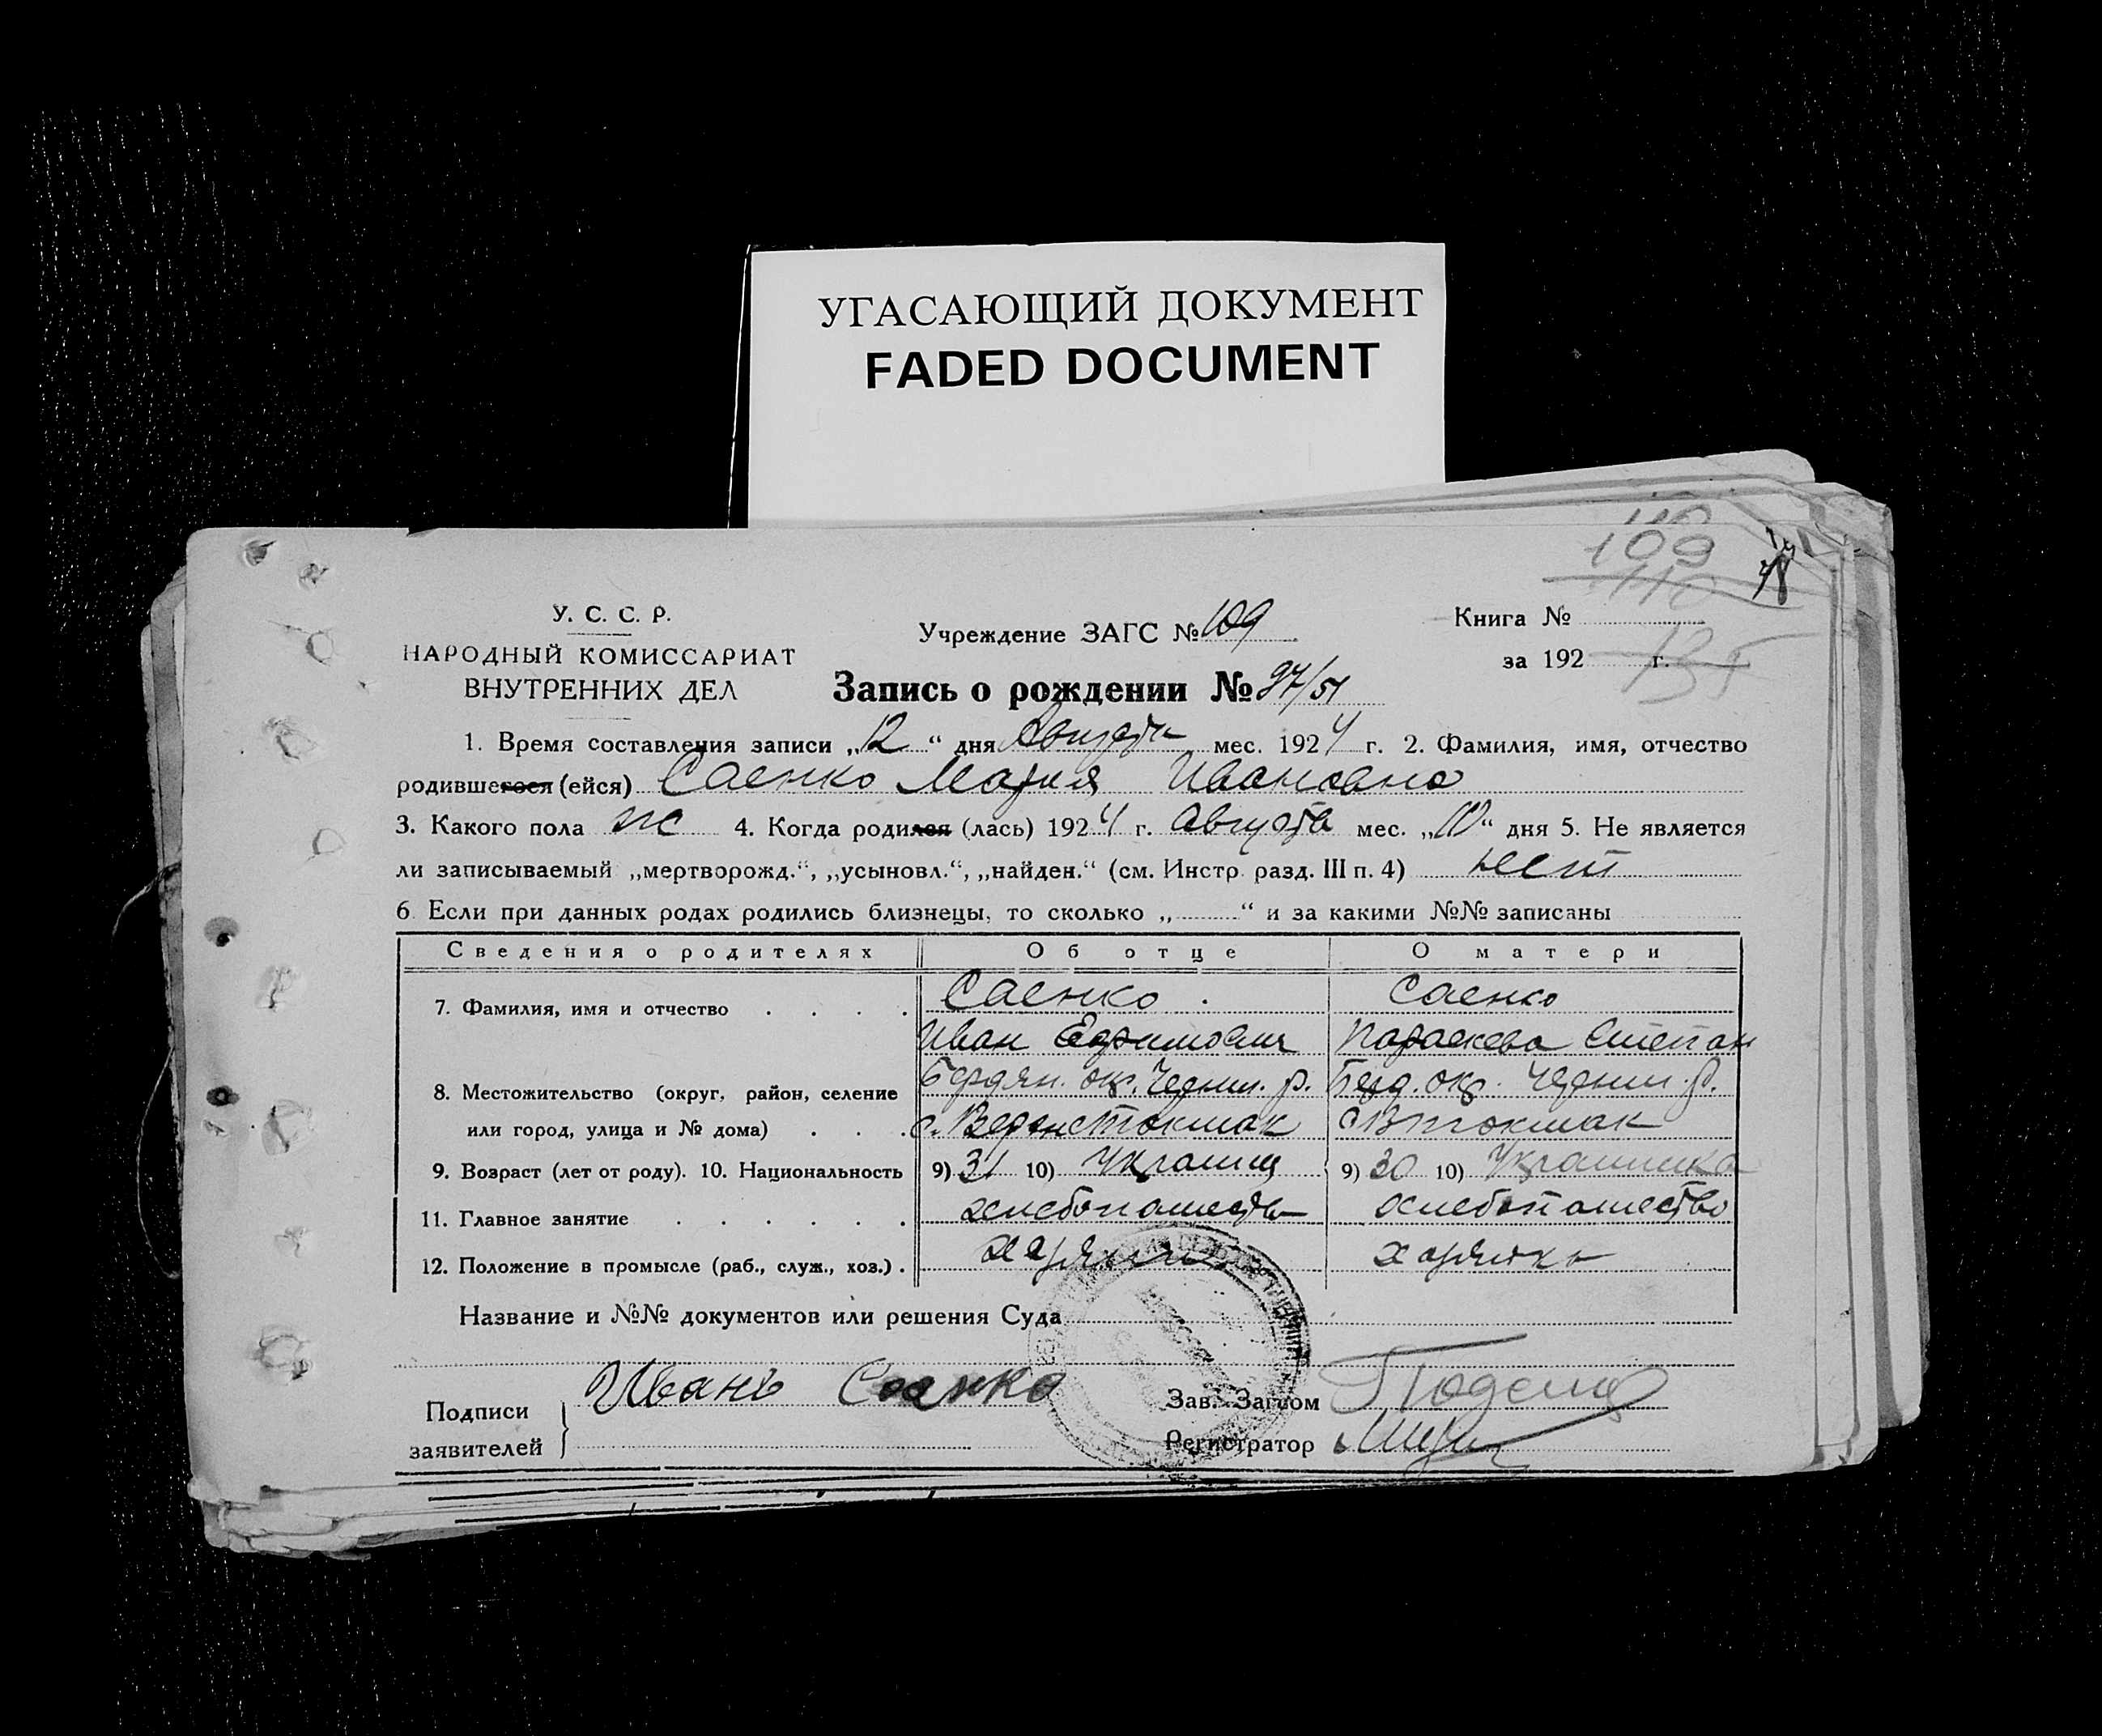 УГАСАЮЩИЙ ДОКУМЕНТ
FADED DOCUMENT
109
110
У. С. С. Р.
НАРОДНЫЙ КОМИССАРИАТ
ВНУТРЕННИХ ДЕЛ
Учреждение ЗАГС № 109
Книга №
за 192 г.
135
Запись о рождении № 97/51
1. Время составления записи „12“ дня Августа мес. 1924 г. 2. Фамилия, имя, отчество
родившегося (ейся) Саенко Мария Ивановна
3. Какого пола ж 4. Когда родился (лась) 1924 г. Августа мес. „10“ дня 5. Не является
ли записываемый „мертворожд.“, „усыновл.“, „найден.“ (см. Инстр. разд. III п. 4) нет
6 Если при данных родах родились близнецы, то сколько „ “ и за какими №№ записаны
Сведения о родителях Об отце О матери
7. Фамилия, имя и отчество . . . . Саенко . Саенко
Иван Ефимович Параскева Степан
8. Местожительство (округ, район, селение Бердян. окр. Черниг. р. Берд. окр. Черниг. р.
или город, улица и № дома) . . . с. Токмак с В Токмак
9. Возраст (лет от роду). 10. Национальность 9) 31 10) Украинец 9) 30 10) Украинка
11. Главное занятие . . . . . . хлебопашество хлебопашество
12. Положение в промысле (раб., служ., хоз.) .
Название и №№ документов или решения Суда
Подписи заявителей Иванъ Саенко
Зав. Загсом
Регистратор